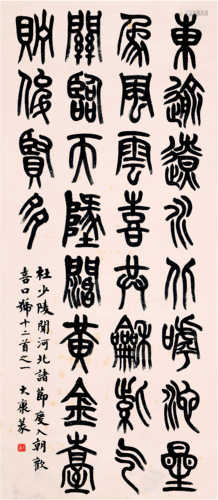 東逾遼水北滹沱曐
象風雲喜共龢紫气
關臨天墬闊黃金臺
貯俊賢多
杜少陵聞河北諸節度入朝歡
喜口號十二首之一 大康篆